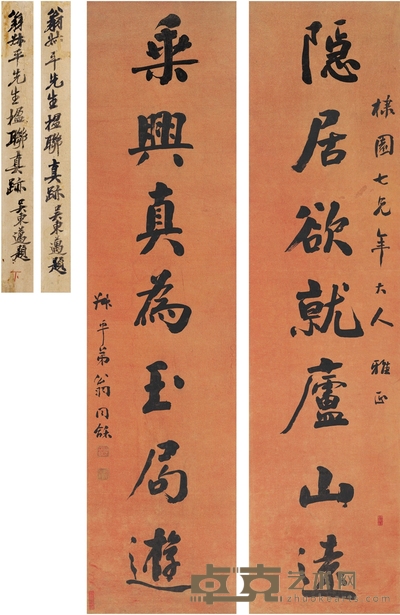 楳園七兄年大人 雅正
隱居欲就廬山遠
乘興真為玉局遊
叔平弟翁同龢
翁叔平先生楹聯真跡 吳東邁題
翁叔平先生楹聯真跡 吳東邁題
卓克艺术网